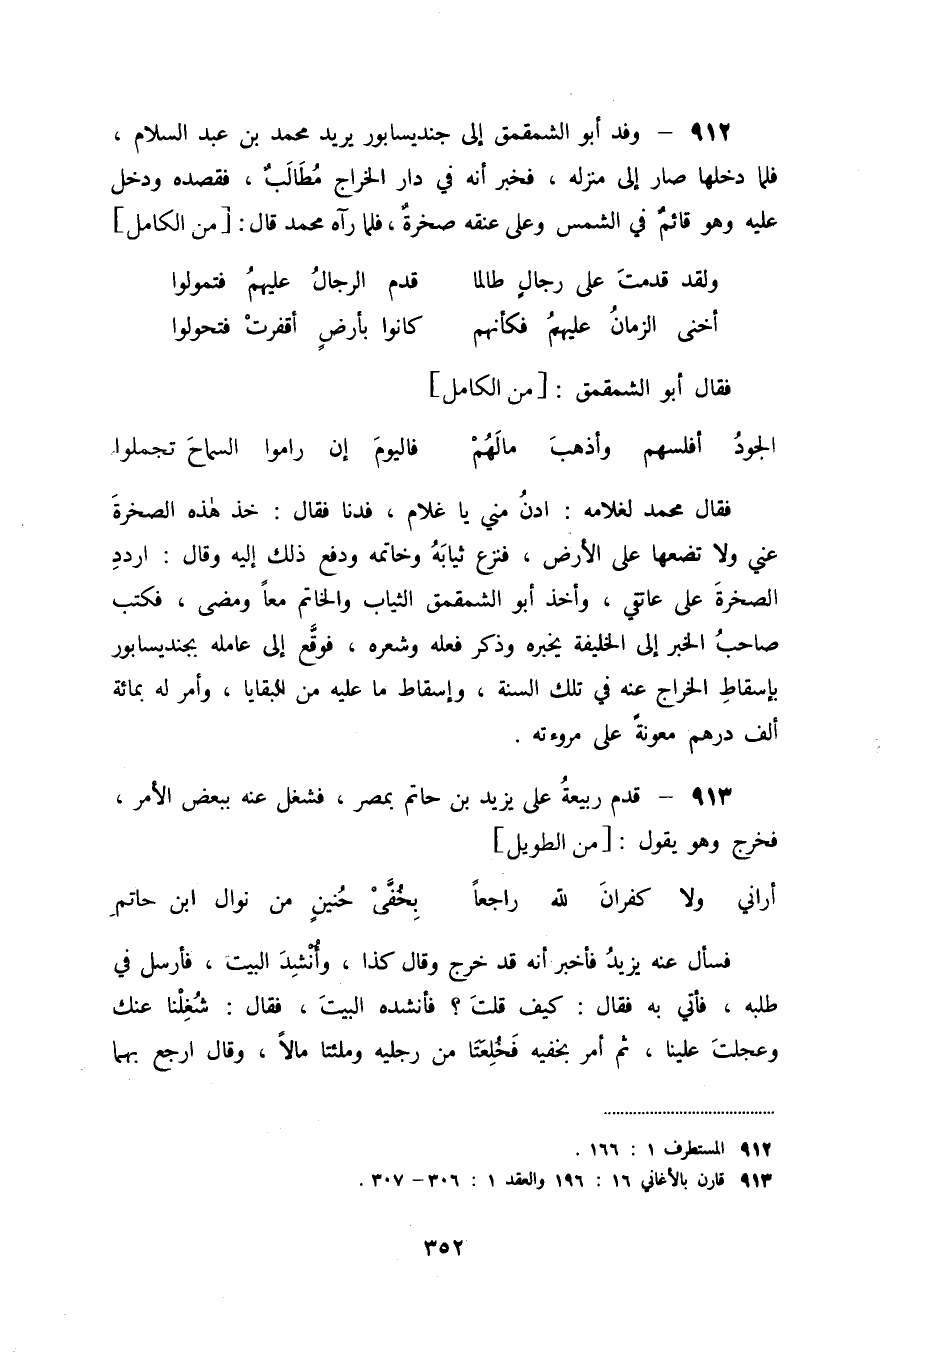 ٩١٢ – وفد أبو الشمقمق إلى جنديسابور يريد محمد بن عبد السلام ،
فلما دخلها صار إلى منزله ، فخبر أنه في دار الخراج مُطَالَبٌ ، فقصده ودخل
عليه وهو قائمٌ في الشمس وعلى عنقه صخرةٌ ، فلما رآه محمد قال : [ من الكامل ]
ولقد قدمتَ على رجالٍ طالما قدم الرجالُ عليهمُ فتمولوا
أخنى الزمانُ عليهمُ فكأنهم كانوا بأرضٍ أقفرتْ فتحولوا
فقال أبو الشمقمق : [ من الكامل ]
الجودُ أفلسهم وأذهبَ مالَهُمْ فاليومَ إن راموا السماحَ تجملوا
فقال محمد لغلامه : ادنُ مني يا غلام ، فدنا فقال : خذ هٰذه الصخرةَ
عني ولا تضعها على الأرض ، فنزع ثيابَهُ وخاتمه ودفع ذلك إليه وقال : ارددِ
الصخرةَ على عاتقي ، وأخذ أبو الشمقمق الثياب والخاتم معاً ومضى ، فكتب
صاحبُ الخبر إلى الخليفة يخبره وذكر فعله وشعره ، فوقَّع إلى عامله بجنديسابور
بإسقاطِ الخراج عنه في تلك السنة ، وإسقاط ما عليه من البقايا ، وأمر له بمائة
ألف درهم معونةً على مروءته .
٩١٣ – قدم ربيعةُ على يزيد بن حاتم بمصر ، فشغل عنه ببعض الأمر ،
فخرج وهو يقول : [ من الطويل ]
أراني ولا كفرانَ لله راجعاً بِخُفَّيْ حُنينٍ من نوال ابن حاتمِ
فسأل عنه يزيدُ فأخبر أنه قد خرج وقال كذا ، وأُنْشِدَ البيت ، فأرسل في
طلبه ، فأتي به فقال : كيف قلتَ ؟ فأنشده البيتَ ، فقال : شُغِلْنا عنك
وعجلتَ علينا ، ثم أمر بخفيه فَخُلِعَتَا من رجليه وملئتا مالاً ، وقال ارجع بهما
٩١٢ المستطرف ١ : ١٦٦ .
٩١٣ قارن بالأغاني ١٦ : ١٩٦ والعقد ١ : ٣٠٦ – ٣٠٧ .
٣٥٢